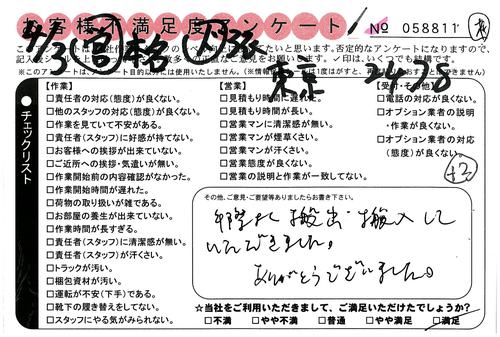 お客様不満足度アンケート
№ 058811
記入後
※このアンケートは、アンケート目的以外には使用いたしません。
チェックリスト
【作業】
□責任者の対応(態度)が良くない。
□他のスタッフの対応(態度)が良くない。
□作業を見ていて不安がある。
□責任者(スタッフ)に好感が持てない。
□お客様への挨拶が出来ていない。
□ご近所への挨拶・気遣いが無い。
□作業開始前の内容確認がなかった。
□作業開始時間が遅れた。
□荷物の取り扱いが雑である。
□お部屋の養生が出来ていない。
□作業時間が長すぎる。
□責任者(スタッフ)に清潔感が無い。
□責任者(スタッフ)が汗くさい。
□トラックが汚い。
□梱包資材が汚い。
□運転が不安(下手)である。
□靴下の履き替えをしてない。
□スタッフにやる気がみられない。
【営業】
□見積もり時間に遅れた。
□見積もり時間が長い。
□営業マンに清潔感が無い。
□営業マンが煙草くさい。
□営業マンが汗くさい。
□営業態度が良くない。
□営業の説明と作業が一致してない。
【受付・その他】
□電話の対応が良くない。
□オプション業者の説明
・作業が良くない。
□オプション業者の対応
(態度)が良くない。
その他、ご意見・ご要望等ありましたらお書き下さい。
搬出 搬入して
いただきました。
ありがとうございました。
☆当社をご利用いただきまして、ご満足いただけたでしょうか?
□不満 □やや不満 □普通 □やや満足 □満足